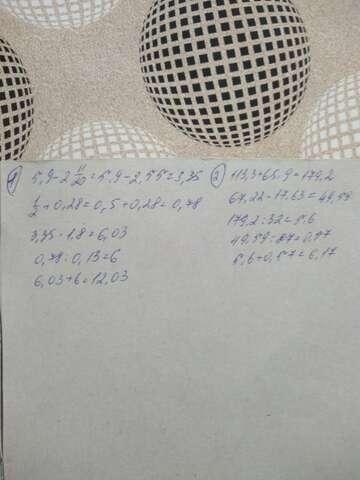 1) 5,9-2 11/20=5.9-2,55=3,35
1/2+0,28=0,5+0,28=0,78
3,35·1.8=6,03
0,78:0,13=6
6,03+6=12,03
2) 113,3+65.9=179,2
67,22-17,63=49,59
179,2:32=5.6
49,59:87=0,57
5,6+0,57=6,17